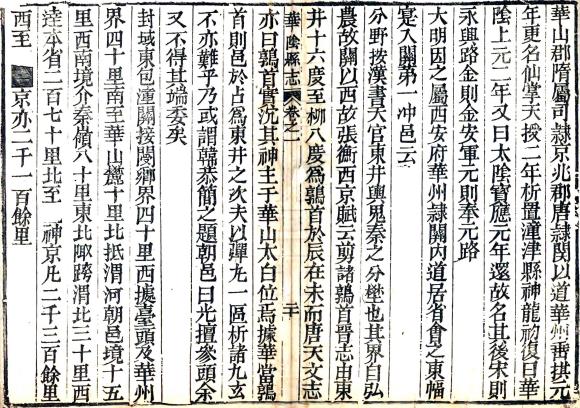 華山郡隋屬司隸京兆郡唐隸關以道華州垂拱元
年更名仙掌天授二年析置潼津縣神龍初復日華
陰上元二年又曰太陰寶應元年還故名其後宋則
永興路金則金安軍元則奉元路
大明因之屬西安府華州隸關內道居省會之東幅
寔入關第一冲邑云
分野按漢書天官東井輿鬼秦之分壄也其界自弘
農故關以西故張衡西京賦云剪諸鶉首晉志由東
井十六度至柳八度爲鶉首於辰在未而唐天文志
華陰縣志 卷之一 二十
亦曰鶉首實沉其神主于華山太白位焉據華當鶉
首則邑於占爲東井之次夫以彈丸一區析諸九玄
不亦難乎乃或謂韓恭簡之題朝邑曰光擅參頭余
又不得其端委矣
封域東包潼關接閿鄉界四十里西據臺頭及華州
界四十里南至華山麓十里北抵渭河朝邑境十五
里西南境介秦嶺八十里東北陬跨渭北三十里西
達本省二百七十里北至 神京凡二千三百餘里
西至 京亦二千一百餘里